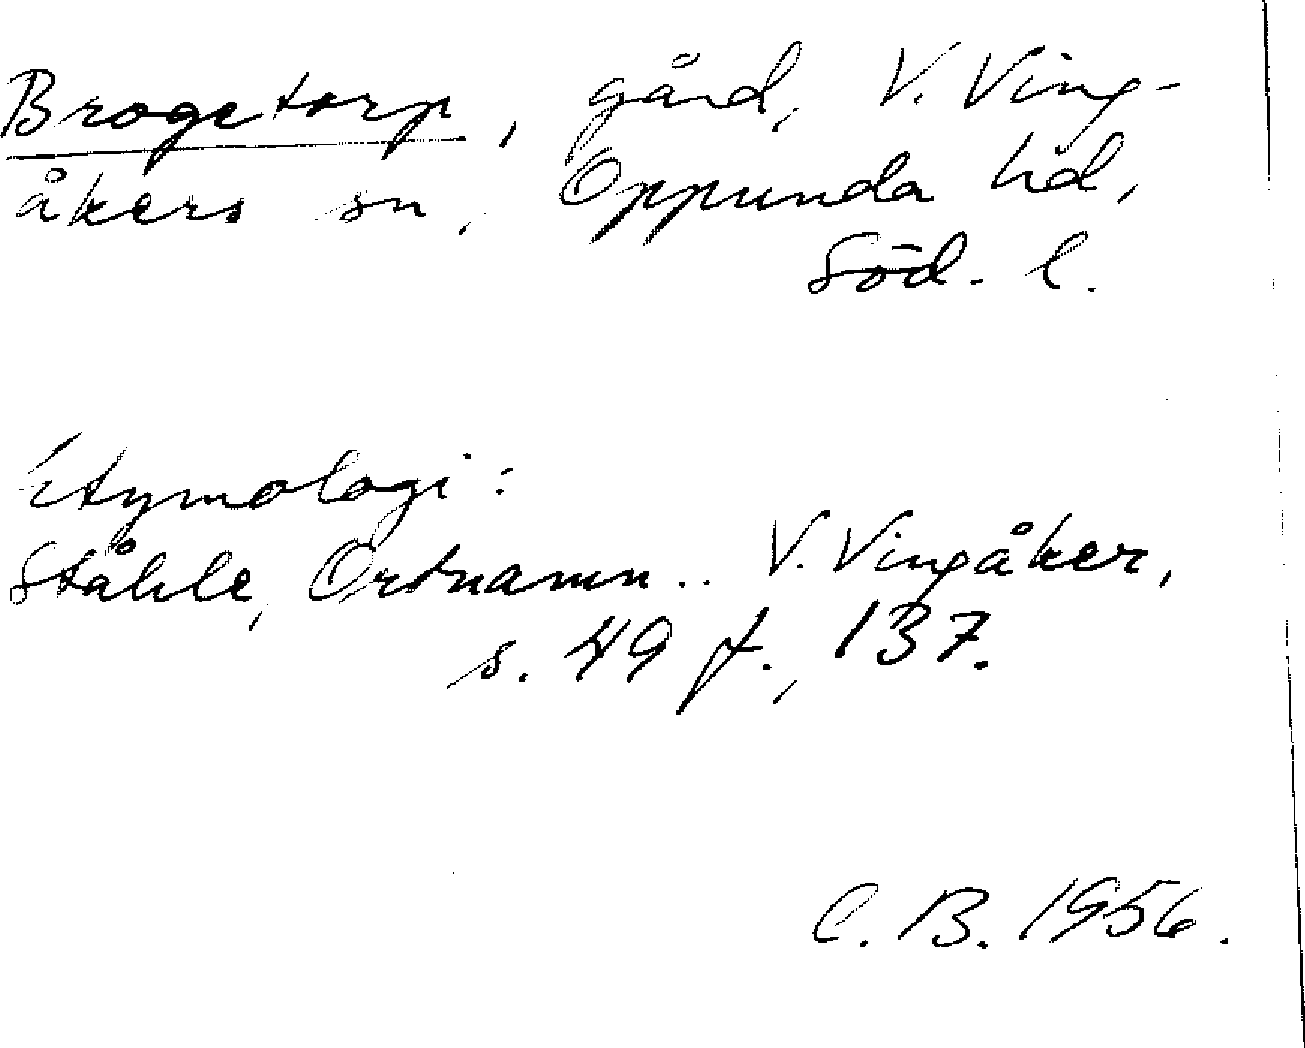 Brogetorp, gård, V. Ving-
åkers sn, Oppunda hd,
Söd. l.
Etymologi:
Ståhle, Ortnamn.. V. Vingåker,
s. 49 f., 137.
C. B. 1956.